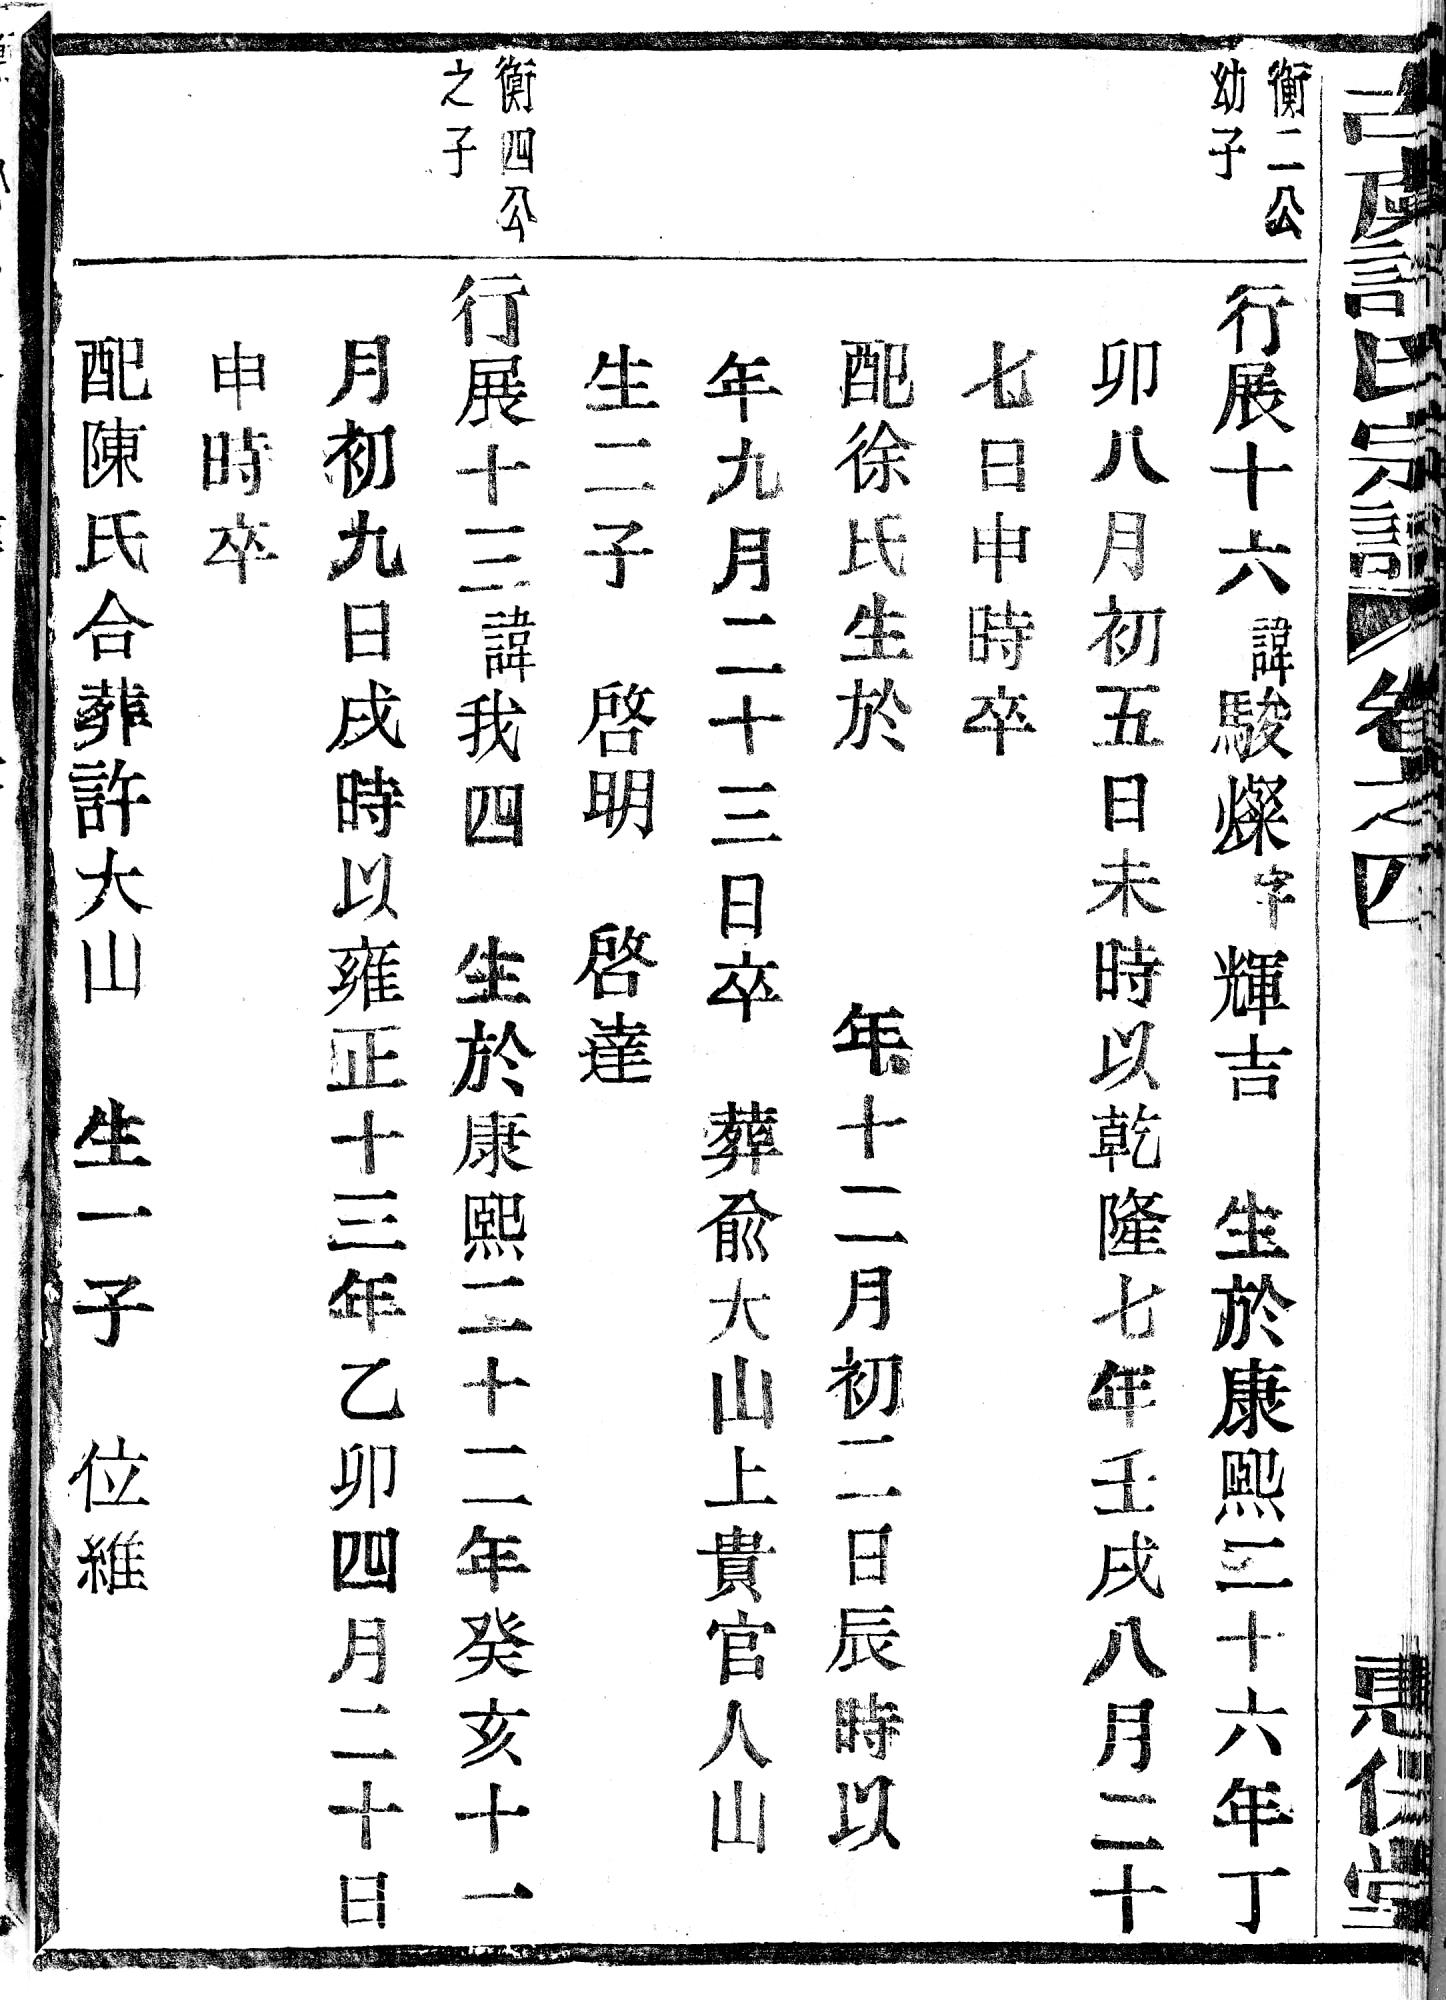 古虞許氏宗譜 卷之四 堂
衡二公
幼子
行展十六諱駿燦字輝吉 生於康熙二十六年丁
卯八月初五日未時以乾隆七年壬戌八月二十
七日申時卒
配徐氏生於 年十二月初二日辰時以
年九月二十三日卒 葬俞大山上貴官人山
生二子 啓明 啓達
衡四公
之子
行展十三諱我四 生於康熙二十二年癸亥十一
月初九日戌時以雍正十三年乙卯四月二十日
申時卒
配陳氏合葬許大山 生一子 位維